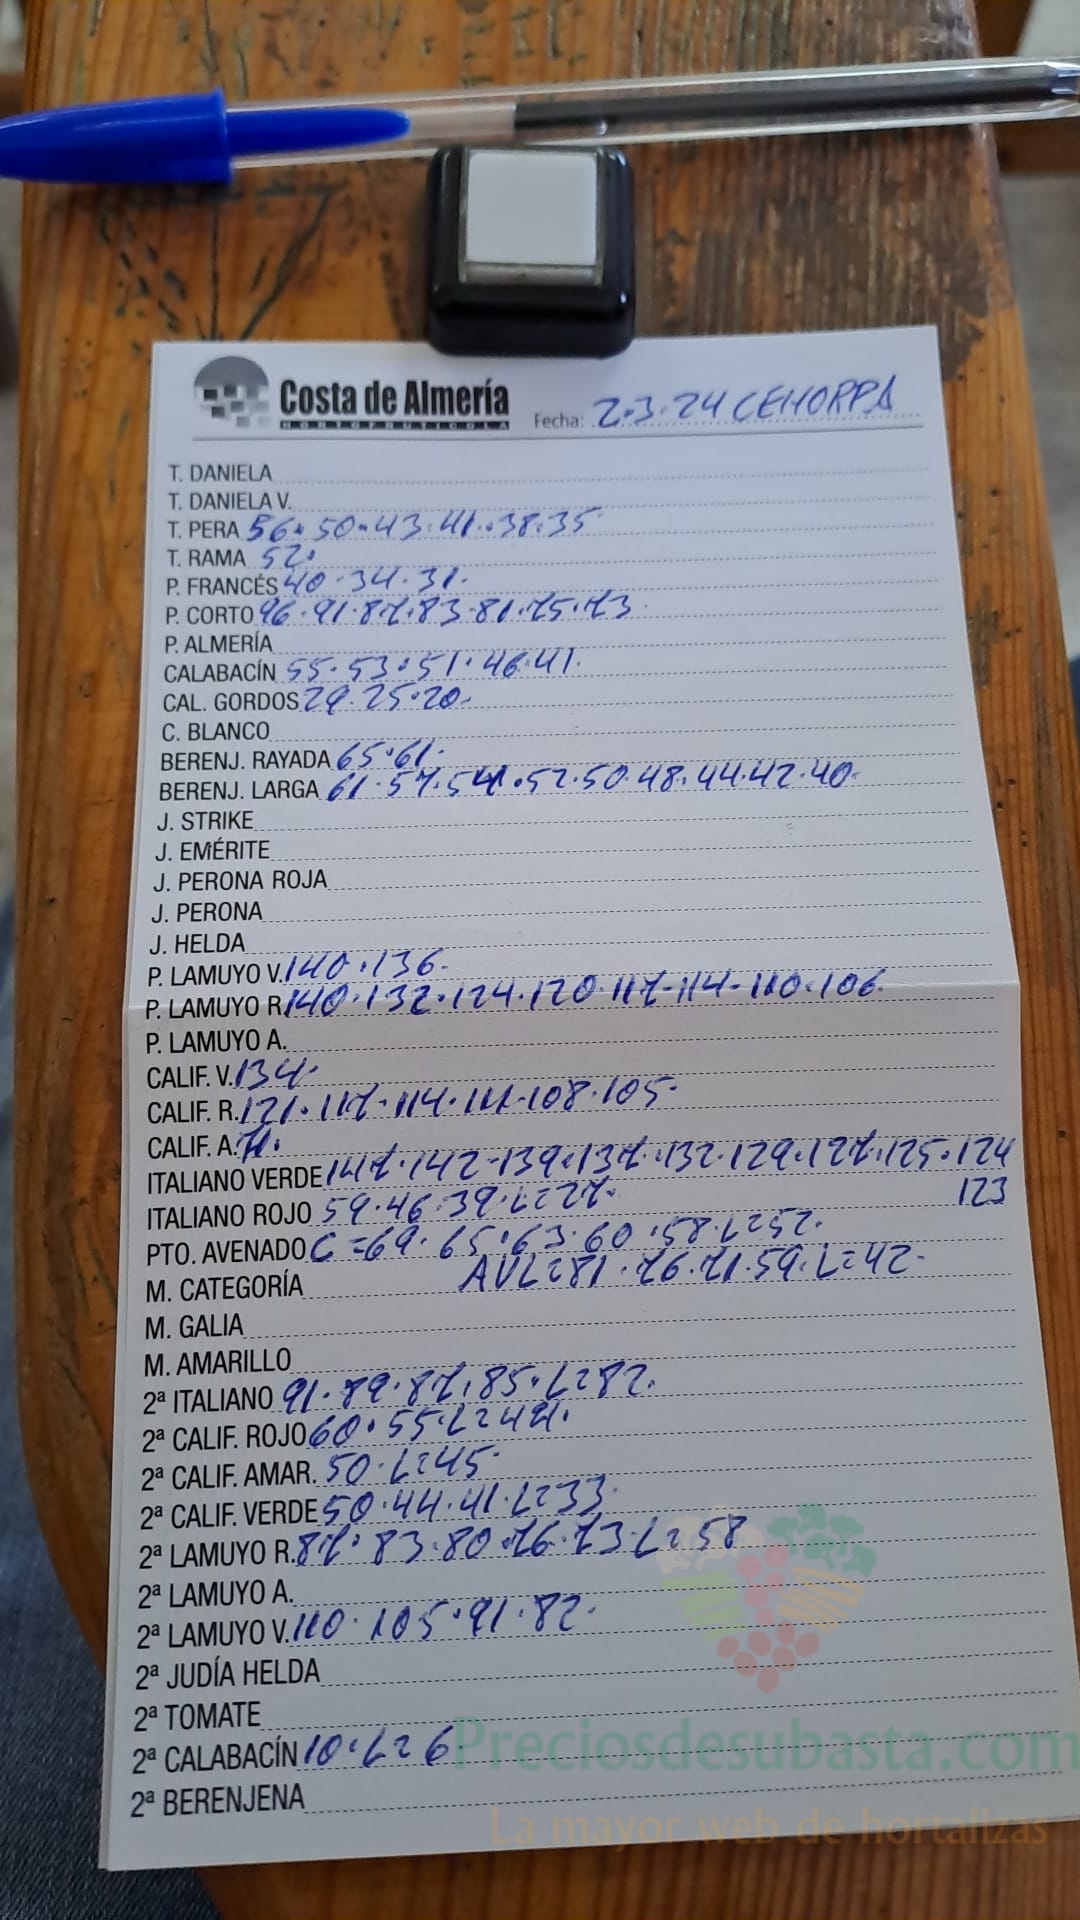 Costa de Almería
HORTOFRUTICOLA
Fecha: 2.3.24 CEHORPA
T. DANIELA
T. DANIELA V.
T. PERA 56.50.43.41.38.35
T. RAMA 52.
P. FRANCÉS 40.34.31.
P. CORTO 96.91.87.83.81.75.73
P. ALMERÍA
CALABACÍN 55.53.51.46.41.
CAL. GORDOS 29.25.20.
C. BLANCO
BERENJ. RAYADA 65.61.
BERENJ. LARGA 61.57.54.52.50.48.44.42.40.
J. STRIKE
J. EMÉRITE
J. PERONA ROJA
J. PERONA
J. HELDA
P. LAMUYO V. 140.136.
P. LAMUYO R. 140.132.124.120.117-114-110.106.
P. LAMUYO A.
CALIF. V. 134.
CALIF. R. 121.117-114.111-108.105.
CALIF. A. 71.
ITALIANO VERDE 147.142-139.137.132.129.127.125.124
123
ITALIANO ROJO 59.46.39.L=27.
PTO. AVENADO C=69.65.63.60.58.L=52.
AVL=81.76.71.59.L=42.
M. CATEGORÍA
M. GALIA
M. AMARILLO
2ª ITALIANO 91.89.87.85.L=82.
2ª CALIF. ROJO 60.55.L=44.
2ª CALIF. AMAR. 50.L=45.
2ª CALIF. VERDE 50.44.41.L=33.
2ª LAMUYO R. 87.83.80.76.73.L=58
2ª LAMUYO A.
2ª LAMUYO V. 110.105.91.82.
2ª JUDÍA HELDA
2ª TOMATE
2ª CALABACÍN 10.L=6
2ª BERENJENA
Preciosdesubasta.com
La mayor web de hortalizas